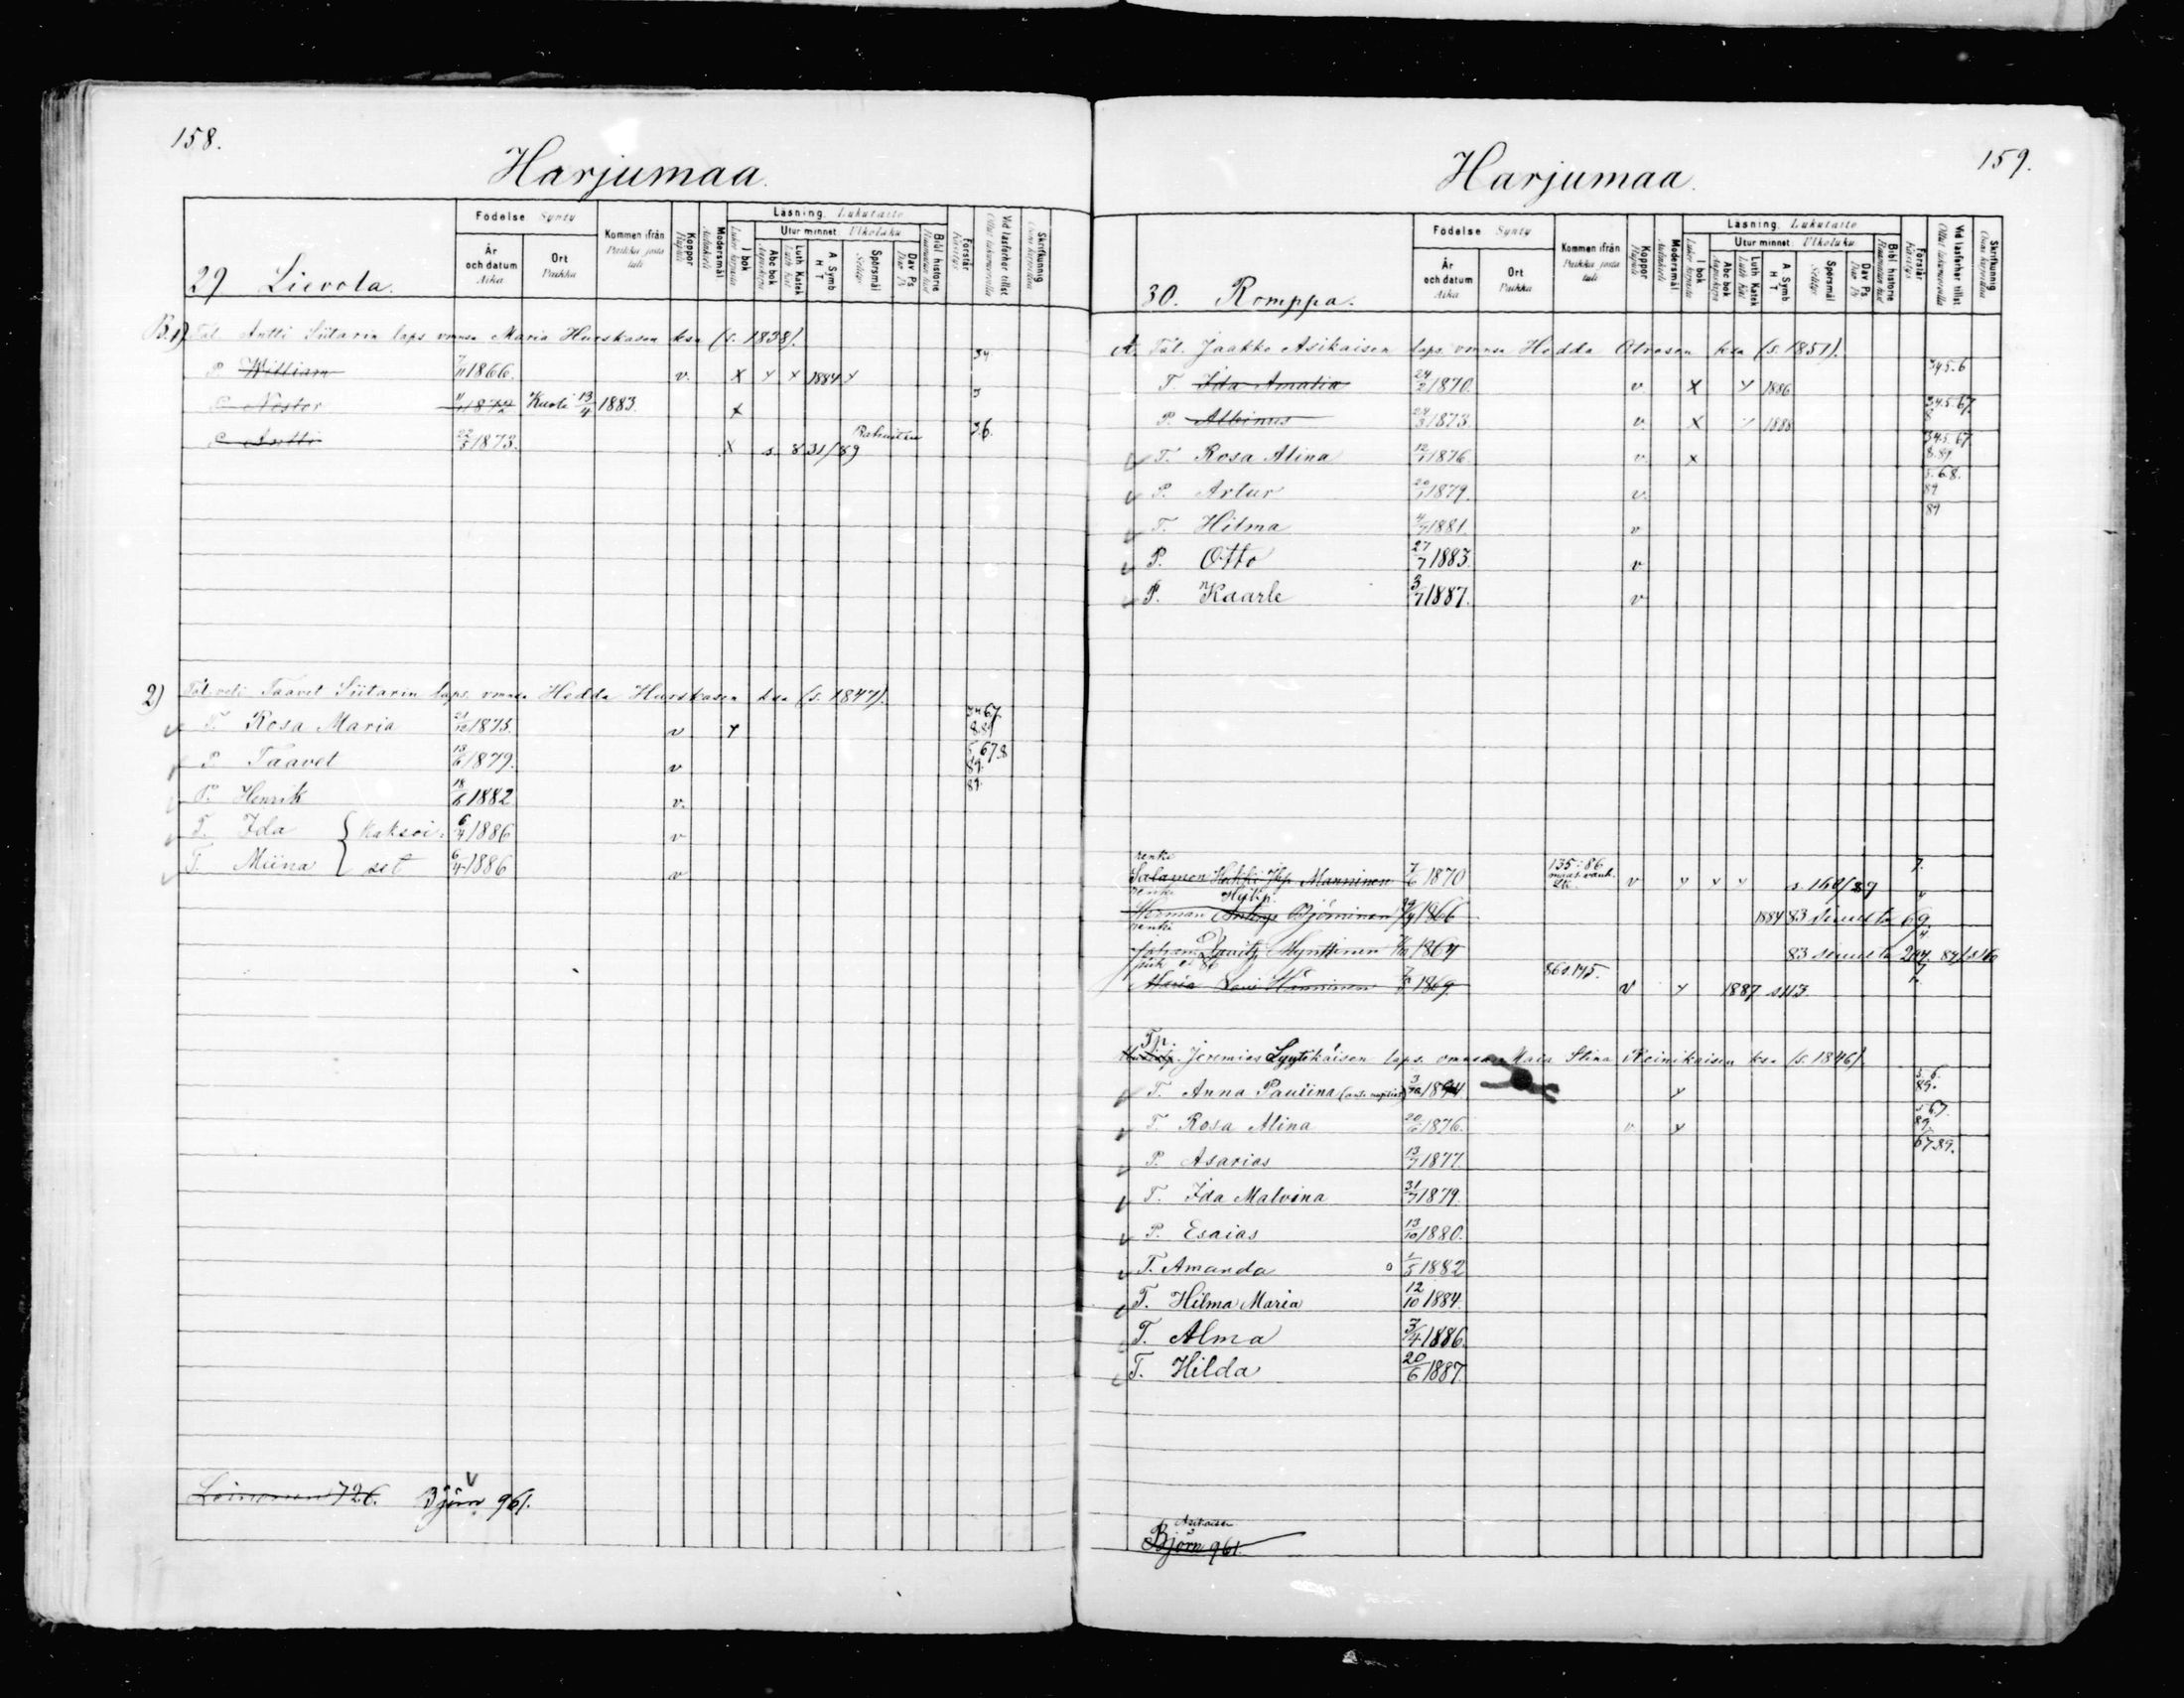 158.
Harjumaa.
Födelse Synty
År och datum Aika
Ort Paikka
Kommen ifrån Paikka josta tuli
Koppor Rupuli
Modersmål Äidinkieli
Läsning. Lukutaito
I bok Lukee kirjasta
Utur minnet. Ulkoluku
Abc bok Aapiskirja
Luth Katek Luth Kat
A Symb H T
Spörsmål Selitys
Dav. Ps Dav. Ps
Bibl historie
Förstår Käsitys
Vid läsförhör tillst
Skrifkunnig
29 Lievola.
B.1) Tal. Antti Siitarin laps vmnsa Maria Hurskasen ksa (s. 1838).
P. William 7/11 1866. v. x y x 1884 y 34
P. Nestor 11/1 1872 Kuoli 13/4 1883. x 3
P. Antti 1873. x s. 831/89 36.
2) Tal. veli Taavet Siitarin laps. vmnsa Hedda Hurskasen ksa (s. 1847).
T. Rosa Maria 21/12 1875. v y 3467 8.89
P. Taavet 13/6 1879. v 5.678 89.
P. Henrik 18/6 1882 v. 89.
T. Ida { kaksoi- 6/4 1886 v
T. Miina } set 6/4 1886 v
Loinonen 726. Björn 961.
159.
Harjumaa.
Födelse Synty
År och datum Aika
Ort Paikka
Kommen ifrån Paikka josta tuli
Koppor Rupuli
Modersmål Äidinkieli
Läsning. Lukutaito
I bok Lukee kirjasta
Utur minnet. Ulkoluku
Abc bok Aapiskirja
Luth Katek Luth Kat
A Symb H T
Spörsmål Selitys
Dav. Ps Dav. Ps
Bibl historie
Förstår Käsitys
Vid läsförhör tillst
Skrifkunnig
30. Romppa.
A. Tal. Jaakko Asikaisen laps. vmnsa Hedda Olvasen ksa (s. 1851).
T. Ida Amalia 24/2 1870. v. x y 1886 345.6
P. Albinus 1873. v. x y 1888 345.67. 8
T. Rosa Alina 12/1 1876. v. x 345.67 8.89
P. Artur 20/1 1879. v. 5.68. 89
T. Hilma 4/7 1881. v 89
P. Otto 27/7 1883. v
P. Kaarle 3/7 1887. v
renki
Salamon Heikki Jkp Manninen 7/6 1870 135:86 v y y y s. 160/89 7.
renki
Herman Björninen 1866 1884 83 sivulta 69.
renki
Mynttinen 1864 83 sivulta 294.
Maria Hänninen 1869. 86 s 145. v y 1887 s 113.
Tp.
Jeremias Lyytikäisen laps. omnsa Maia Stina Reinikaisen ksa (s. 1846)
T. Anna Pauliina 1874 y 5.6. 89.
T. Rosa Alina 20/6 1876. v. y 567. 89.
P. Asarias 13/7 1877. 6789.
T. Ida Malvina 31/7 1879.
P. Esaias 13/10 1880.
T. Amanda 1/5 1882
T. Hilma Maria 12/10 1884.
T. Alma 3/4 1886.
T. Hilda 20/6 1887.
Asikaisen
Björn 961.